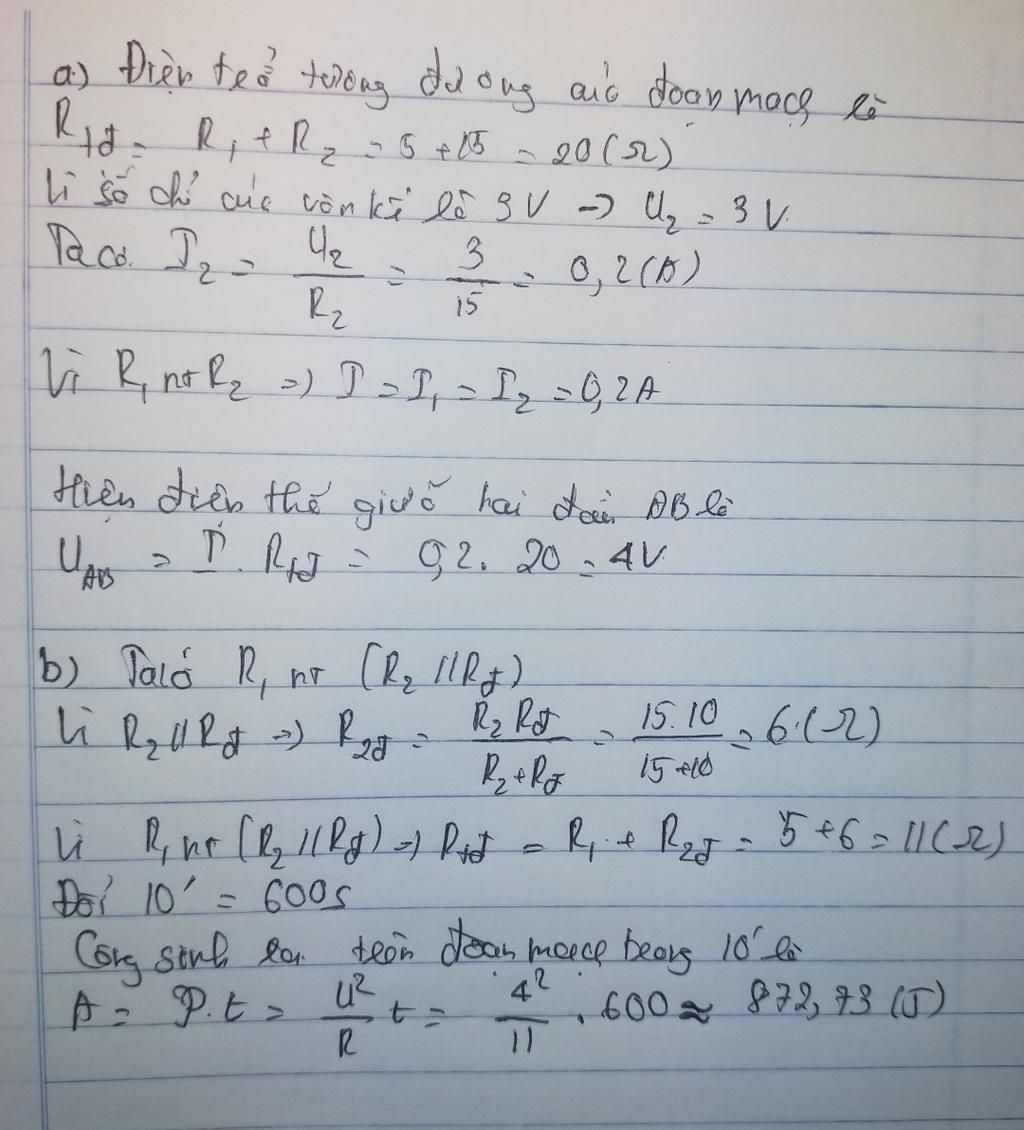 a) Điện trở tương đương của đoạn mạch là
Rtđ = R1 + R2 = 5 + 15 = 20 (Ω)
Vì số chỉ của vôn kế là 3V → U2 = 3V.
Ta có. I2 = U2/R2 = 3/15 = 0,2 (A)
Vì R1 nt R2 => I = I1 = I2 = 0,2A
Hiệu điện thế giữa hai đầu AB là
UAB = I. Rtđ = 0,2. 20 = 4V
b) Ta có R1 nt (R2 // Rđ)
Vì R2 // Rđ => R2đ = R2 Rđ/R2 + Rđ = 15.10/15+10 = 6 (Ω)
Vì R1 nt (R2 // Rđ) => Rtđ = R1 + R2đ = 5 + 6 = 11 (Ω)
Đổi 10' = 600s
Công sinh ra trên đoạn mạch trong 10' là
A = P.t = U²/R t = 4²/11 . 600 ≈ 872,73 (J)